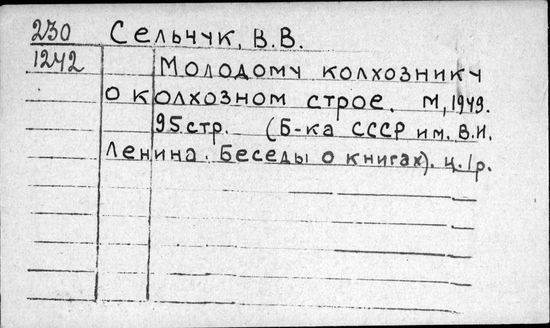 230 Сельчук, В.В.
1242 Молодому колхознику
о колхозном строе. М, 1949.
95 стр. (Б-ка СССР им. В.И.
Ленина. Беседы о книгах). ц. 1р.